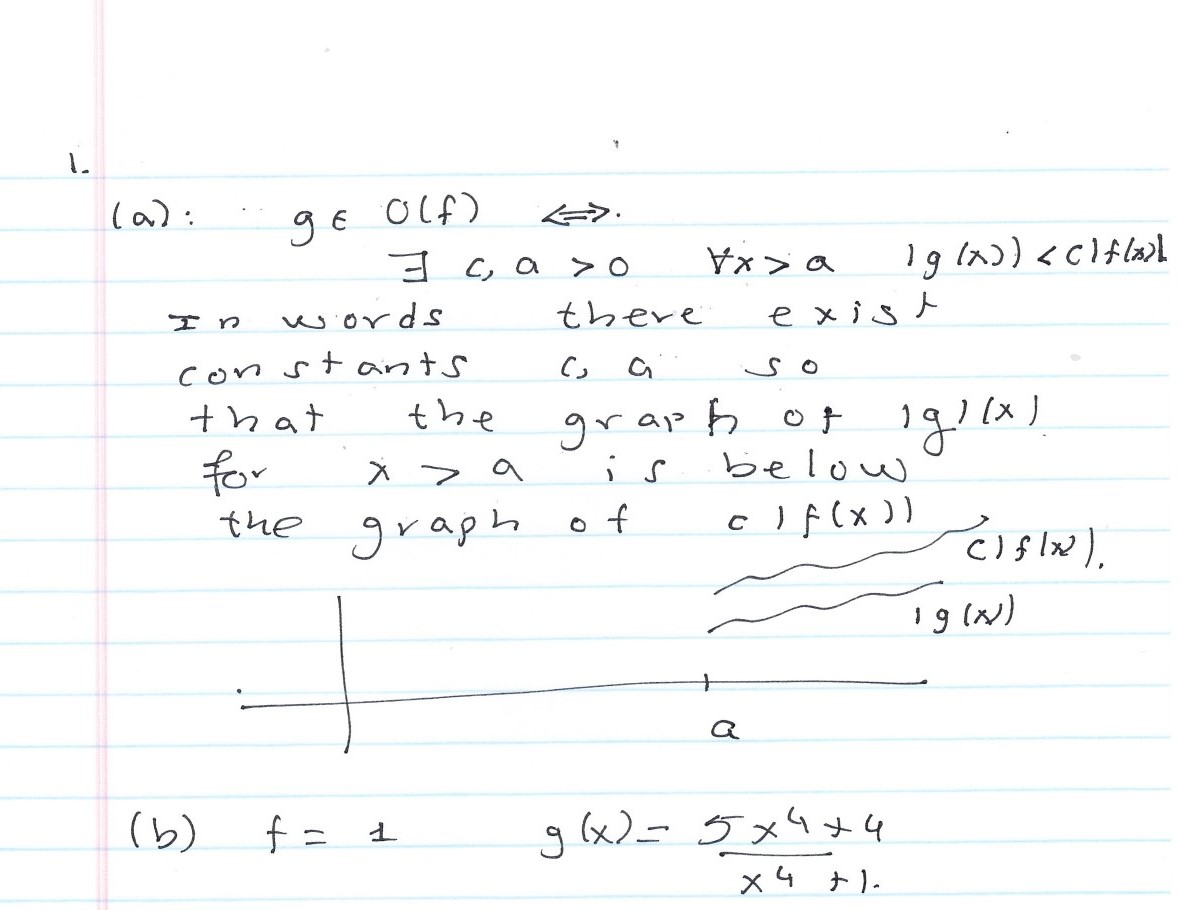 1.
(a): g ∈ O(f) ⟺.
∃ c, a > 0 ∀x > a |g(x)| < c|f(x)|
In words there exist
constants c, a so
that the graph of |g|(x)
for x > a is below
the graph of c|f(x)|
c|f(x)|.
|g(x)|
a
(b) f = 1 g(x) = 5x⁴ + 4
x⁴ + 1.